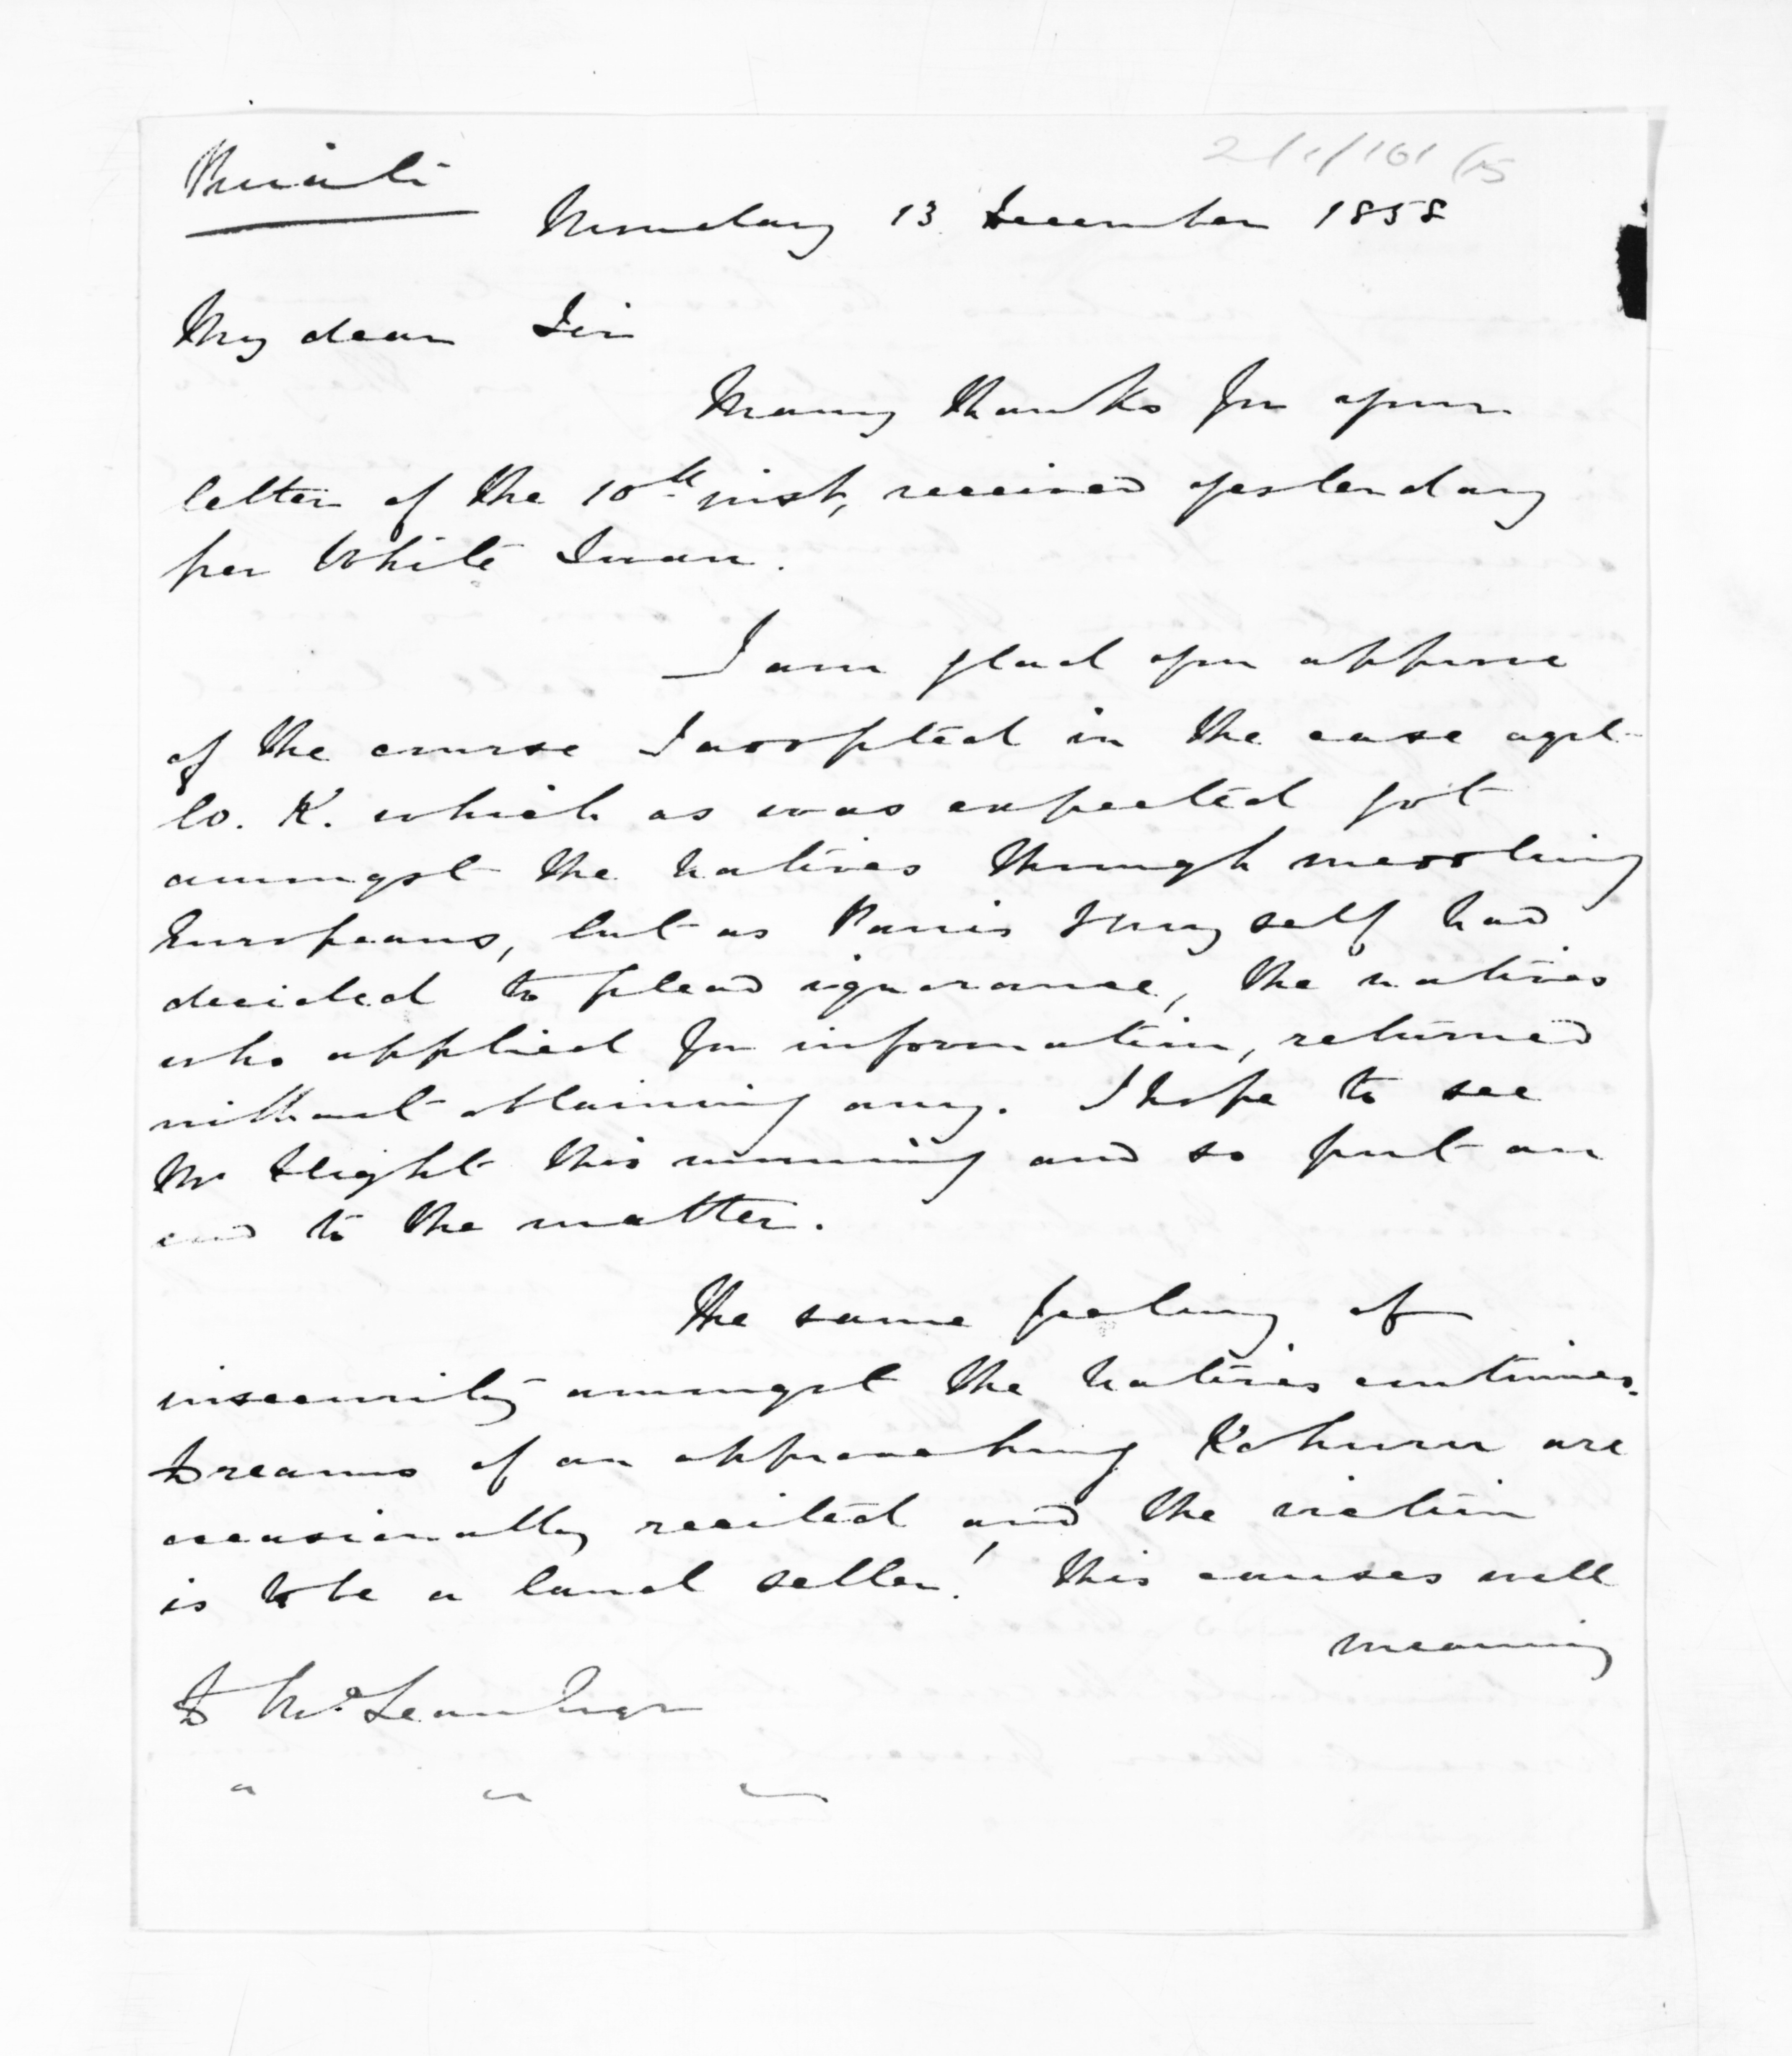 Private
2/1/161 (15
Monday 13 December 1858
My dear Sir
Many thanks for your
letter of the 10th inst, received yesterday
per White Swan.
I am glad you approve
of the course I adopted in the case agst
Co. K. which as was expected got
amongst the natives through meddling
Europeans, but as Parris & myself had
decided to plead ignorance, the natives
who applied for information, returned
without obtaining any. I hope to see
Mr Flight this morning and so put an
end to the matter.
The same feeling of
insecurity amongst the natives continues.
Dreams of an approaching Kohuru are
occasionally recited and the victim
is to be a land seller! This causes well
meaning
D McLean Esqr
" " "